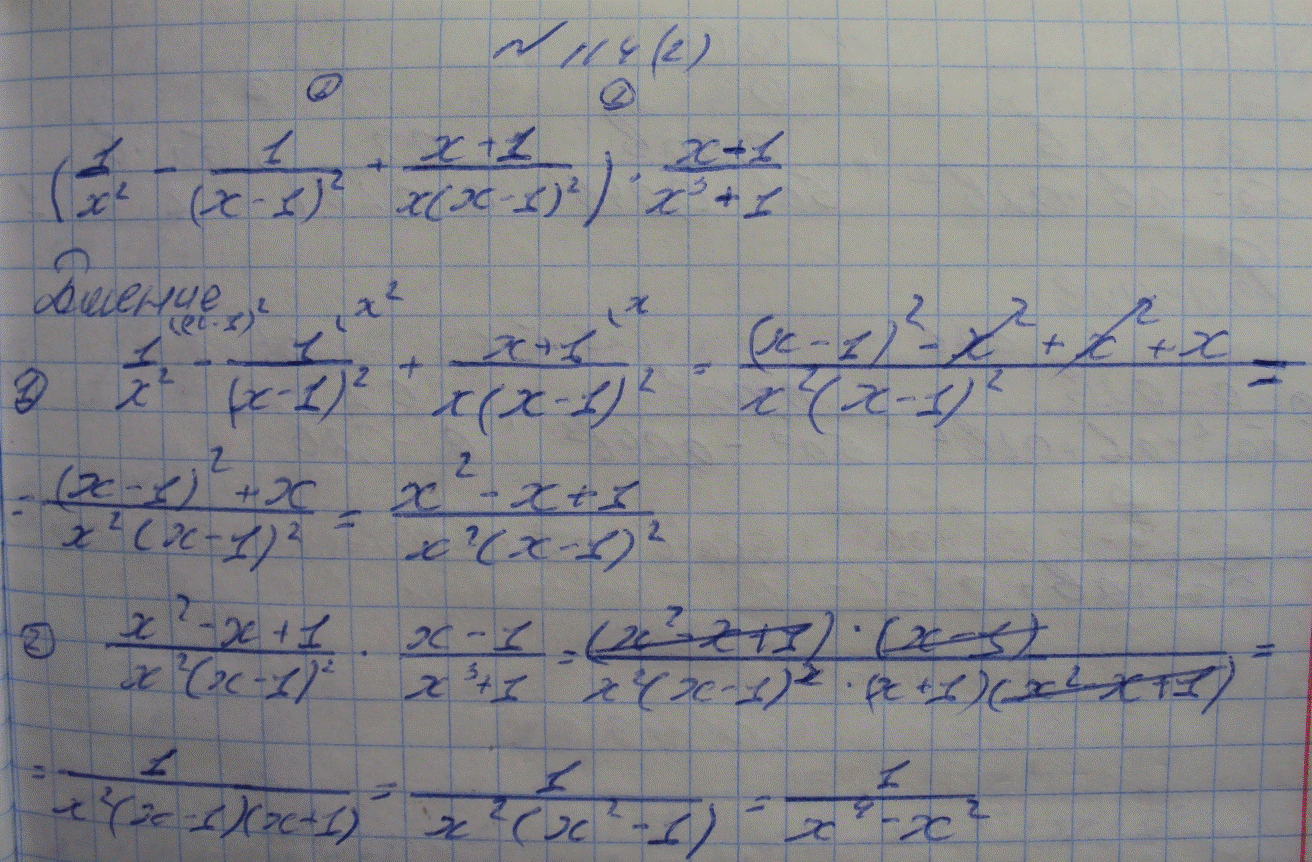 № 114(2)
① ②
(1/x² - 1/(x-1)² + (x+1)/(x(x-1)²)) · (x-1)/(x³+1)
Решение
① 1/x² ⁽ˣ⁻¹⁾² - 1/(x-1)² ˣ² + (x+1)/(x(x-1)²) ˣ = ((x-1)² - x² + x² + x)/(x²(x-1)²) =
= ((x-1)² + x)/(x²(x-1)²) = (x² - x + 1)/(x²(x-1)²)
② (x² - x + 1)/(x²(x-1)²) · (x - 1)/(x³+1) = ((x² - x + 1) · (x - 1))/(x²(x-1)² · (x+1)(x² - x + 1)) =
= 1/(x²(x-1)(x+1)) = 1/(x²(x² - 1)) = 1/(x⁴ - x²)